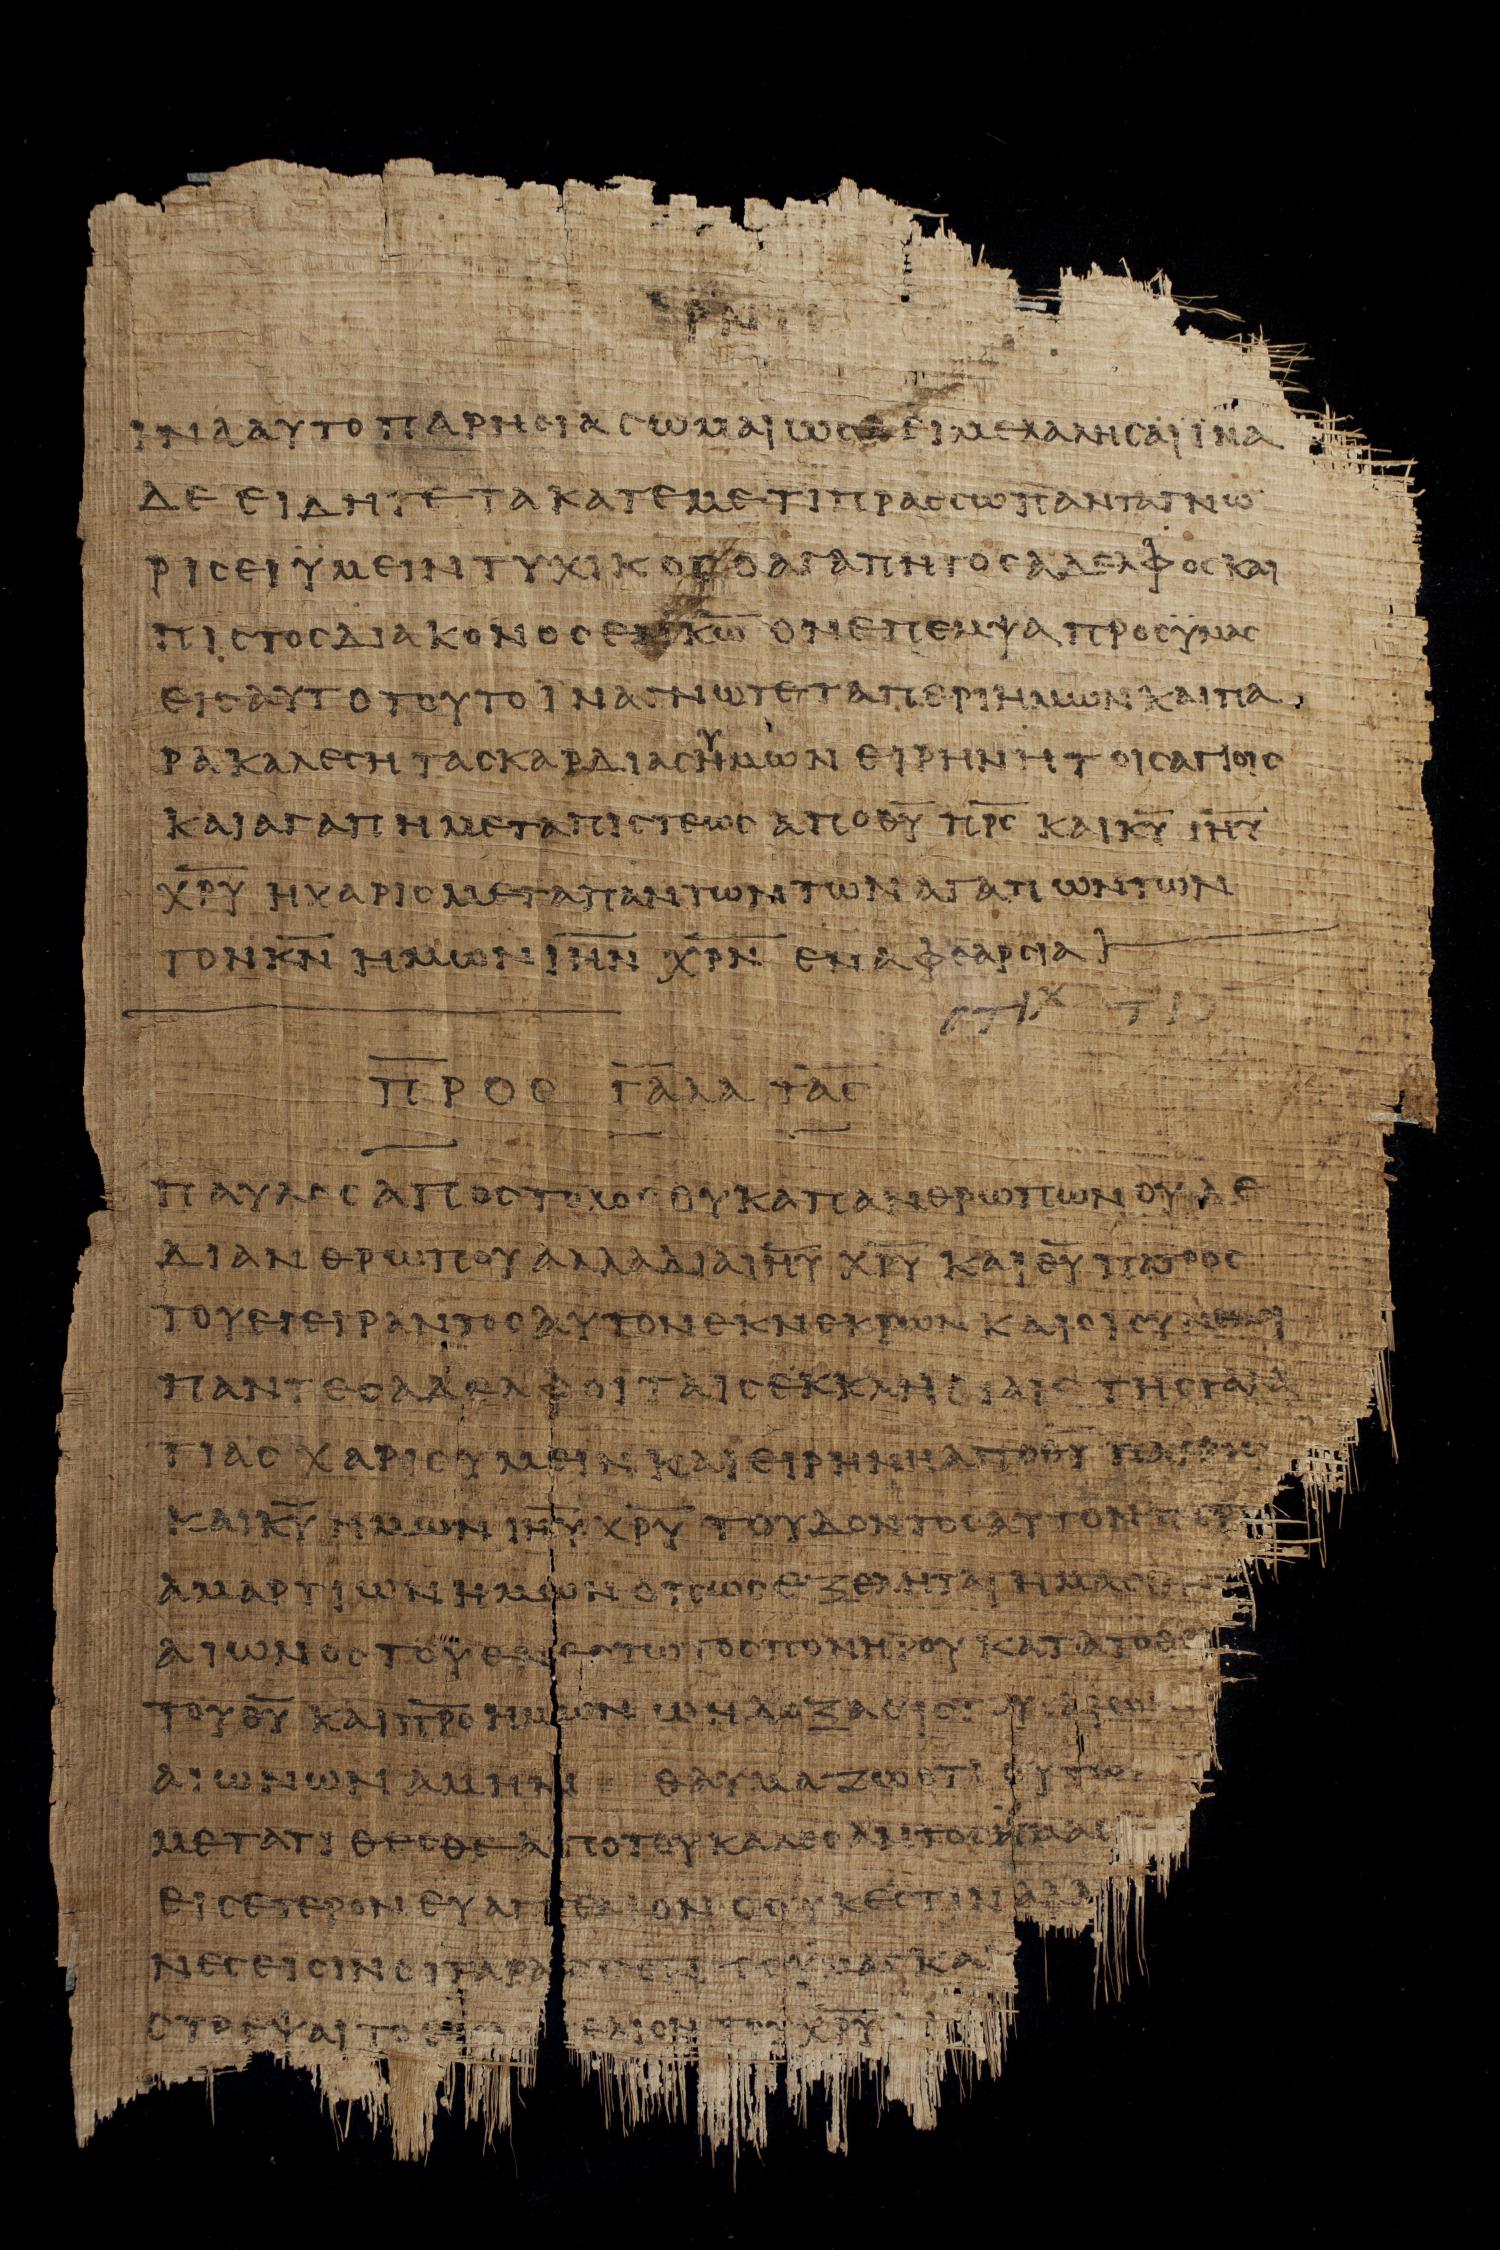 ΡΝΗ
ΙΝΑ ΑΥΤΟ ΠΑΡΗСΙΑСΩΜΑΙ ΩС ΔΕΙ ΜΕ ΛΑΛΗСΑΙ ΙΝΑ
ΔΕ ΕΙΔΗΤΕ ΤΑ ΚΑΤ ΕΜΕ ΤΙ ΠΡΑССΩ ΠΑΝΤΑ ΓΝΩ
ΡΙСΕΙ ΫΜΕΙΝ ΤΥΧΙΚΟС Ο ΑΓΑΠΗΤΟС ΑΔΕΛΦΟС ΚΑΙ
ΠΙСΤΟС ΔΙΑΚΟΝΟС ΕΝ Κ̅Ω̅ ΟΝ ΕΠΕΜΨΑ ΠΡΟС ΫΜΑС
ΕΙС ΑΥΤΟ ΤΟΥΤΟ ΙΝΑ ΓΝΩΤΕ ΤΑ ΠΕΡΙ ΗΜΩΝ ΚΑΙ ΠΑ
ΡΑΚΑΛΕСΗ ΤΑС ΚΑΡΔΙΑС ΗΥΜΩΝ ΕΙΡΗΝΗ ΤΟΙС ΑΓΙΟΙС
ΚΑΙ ΑΓΑΠΗ ΜΕΤΑ ΠΙСΤΕΩС ΑΠΟ Θ̅Υ̅ Π̅Ρ̅С̅ ΚΑΙ Κ̅Υ̅ Ι̅Η̅Υ̅
Χ̅Ρ̅Υ̅ Η ΧΑΡΙС ΜΕΤΑ ΠΑΝΤΩΝ ΤΩΝ ΑΓΑΠΩΝΤΩΝ
ΤΟΝ Κ̅Ν̅ ΗΜΩΝ Ι̅Η̅Ν̅ Χ̅Ρ̅Ν̅ ΕΝ ΑΦΘΑΡСΙΑ
СΤΙΧ ΤΙ
Π̅ΡΟС Γ̅Α̅ΛΑΤ̅Α̅С̅
ΠΑΥΛΟС ΑΠΟСΤΟΛΟС ΟΥΚ ΑΠ ΑΝΘΡΩΠΩΝ ΟΥΔΕ
ΔΙ ΑΝΘΡΩΠΟΥ ΑΛΛΑ ΔΙΑ Ι̅Η̅Υ̅ Χ̅Ρ̅Υ̅ ΚΑΙ Θ̅Υ̅ ΠΑΤΡΟС
ΤΟΥ ΕΓΕΙΡΑΝΤΟС ΑΥΤΟΝ ΕΚ ΝΕΚΡΩΝ ΚΑΙ ΟΙ СΥΝ ΕΜΟΙ
ΠΑΝΤΕС ΑΔΕΛΦΟΙ ΤΑΙС ΕΚΚΛΗСΙΑΙС ΤΗС ΓΑΛΑ
ΤΙΑС ΧΑΡΙС ΥΜΕΙΝ ΚΑΙ ΕΙΡΗΝΗ ΑΠΟ Θ̅Υ̅ ΠΑΤΡΟС
ΚΑΙ Κ̅Υ̅ ΗΜΩΝ Ι̅Η̅Υ̅ Χ̅Ρ̅Υ̅ ΤΟΥ ΔΟΝΤΟС ΑΥΤΟΝ ΠΕΡΙ
ΑΜΑΡΤΙΩΝ ΗΜΩΝ ΟΠΩС ΕΞΕΛΗΤΑΙ ΗΜΑС
ΑΙΩΝΟС ΤΟΥ ΕΝΕСΤΩΤΟС ΠΟΝΗΡΟΥ ΚΑΤΑ ΤΟ ΘΕ
ΤΟΥ Θ̅Υ̅ ΚΑΙ Π̅Ρ̅Ο̅ ΗΜΩΝ Ω Η ΔΟΞΑ ΕΙС ΤΟΥС ΑΙΩ
ΑΙΩΝΩΝ ΑΜΗΝ ΘΑΥΜΑΖΩ ΟΤΙ ΟΥΤΩ
ΜΕΤΑΤΙΘΕСΘΕ ΑΠΟ ΤΟΥ ΚΑΛΕСΑΝΤΟС ΥΜΑС
ΕΙС ΕΤΕΡΟΝ ΕΥΑΓΓΕΛΙΟΝ Ο ΟΥΚ ΕСΤΙΝ ΑΛΛ
ΝΕС ΕΙСΙΝ ΟΙ ΤΑΡΑССΟΝΤΕС ΥΜΑС ΚΑΙ
СΤΡΕΨΑΙ ΤΟ ΕΥΑΓΓΕΛΙΟΝ ΤΟΥ Χ̅Ρ̅Υ̅